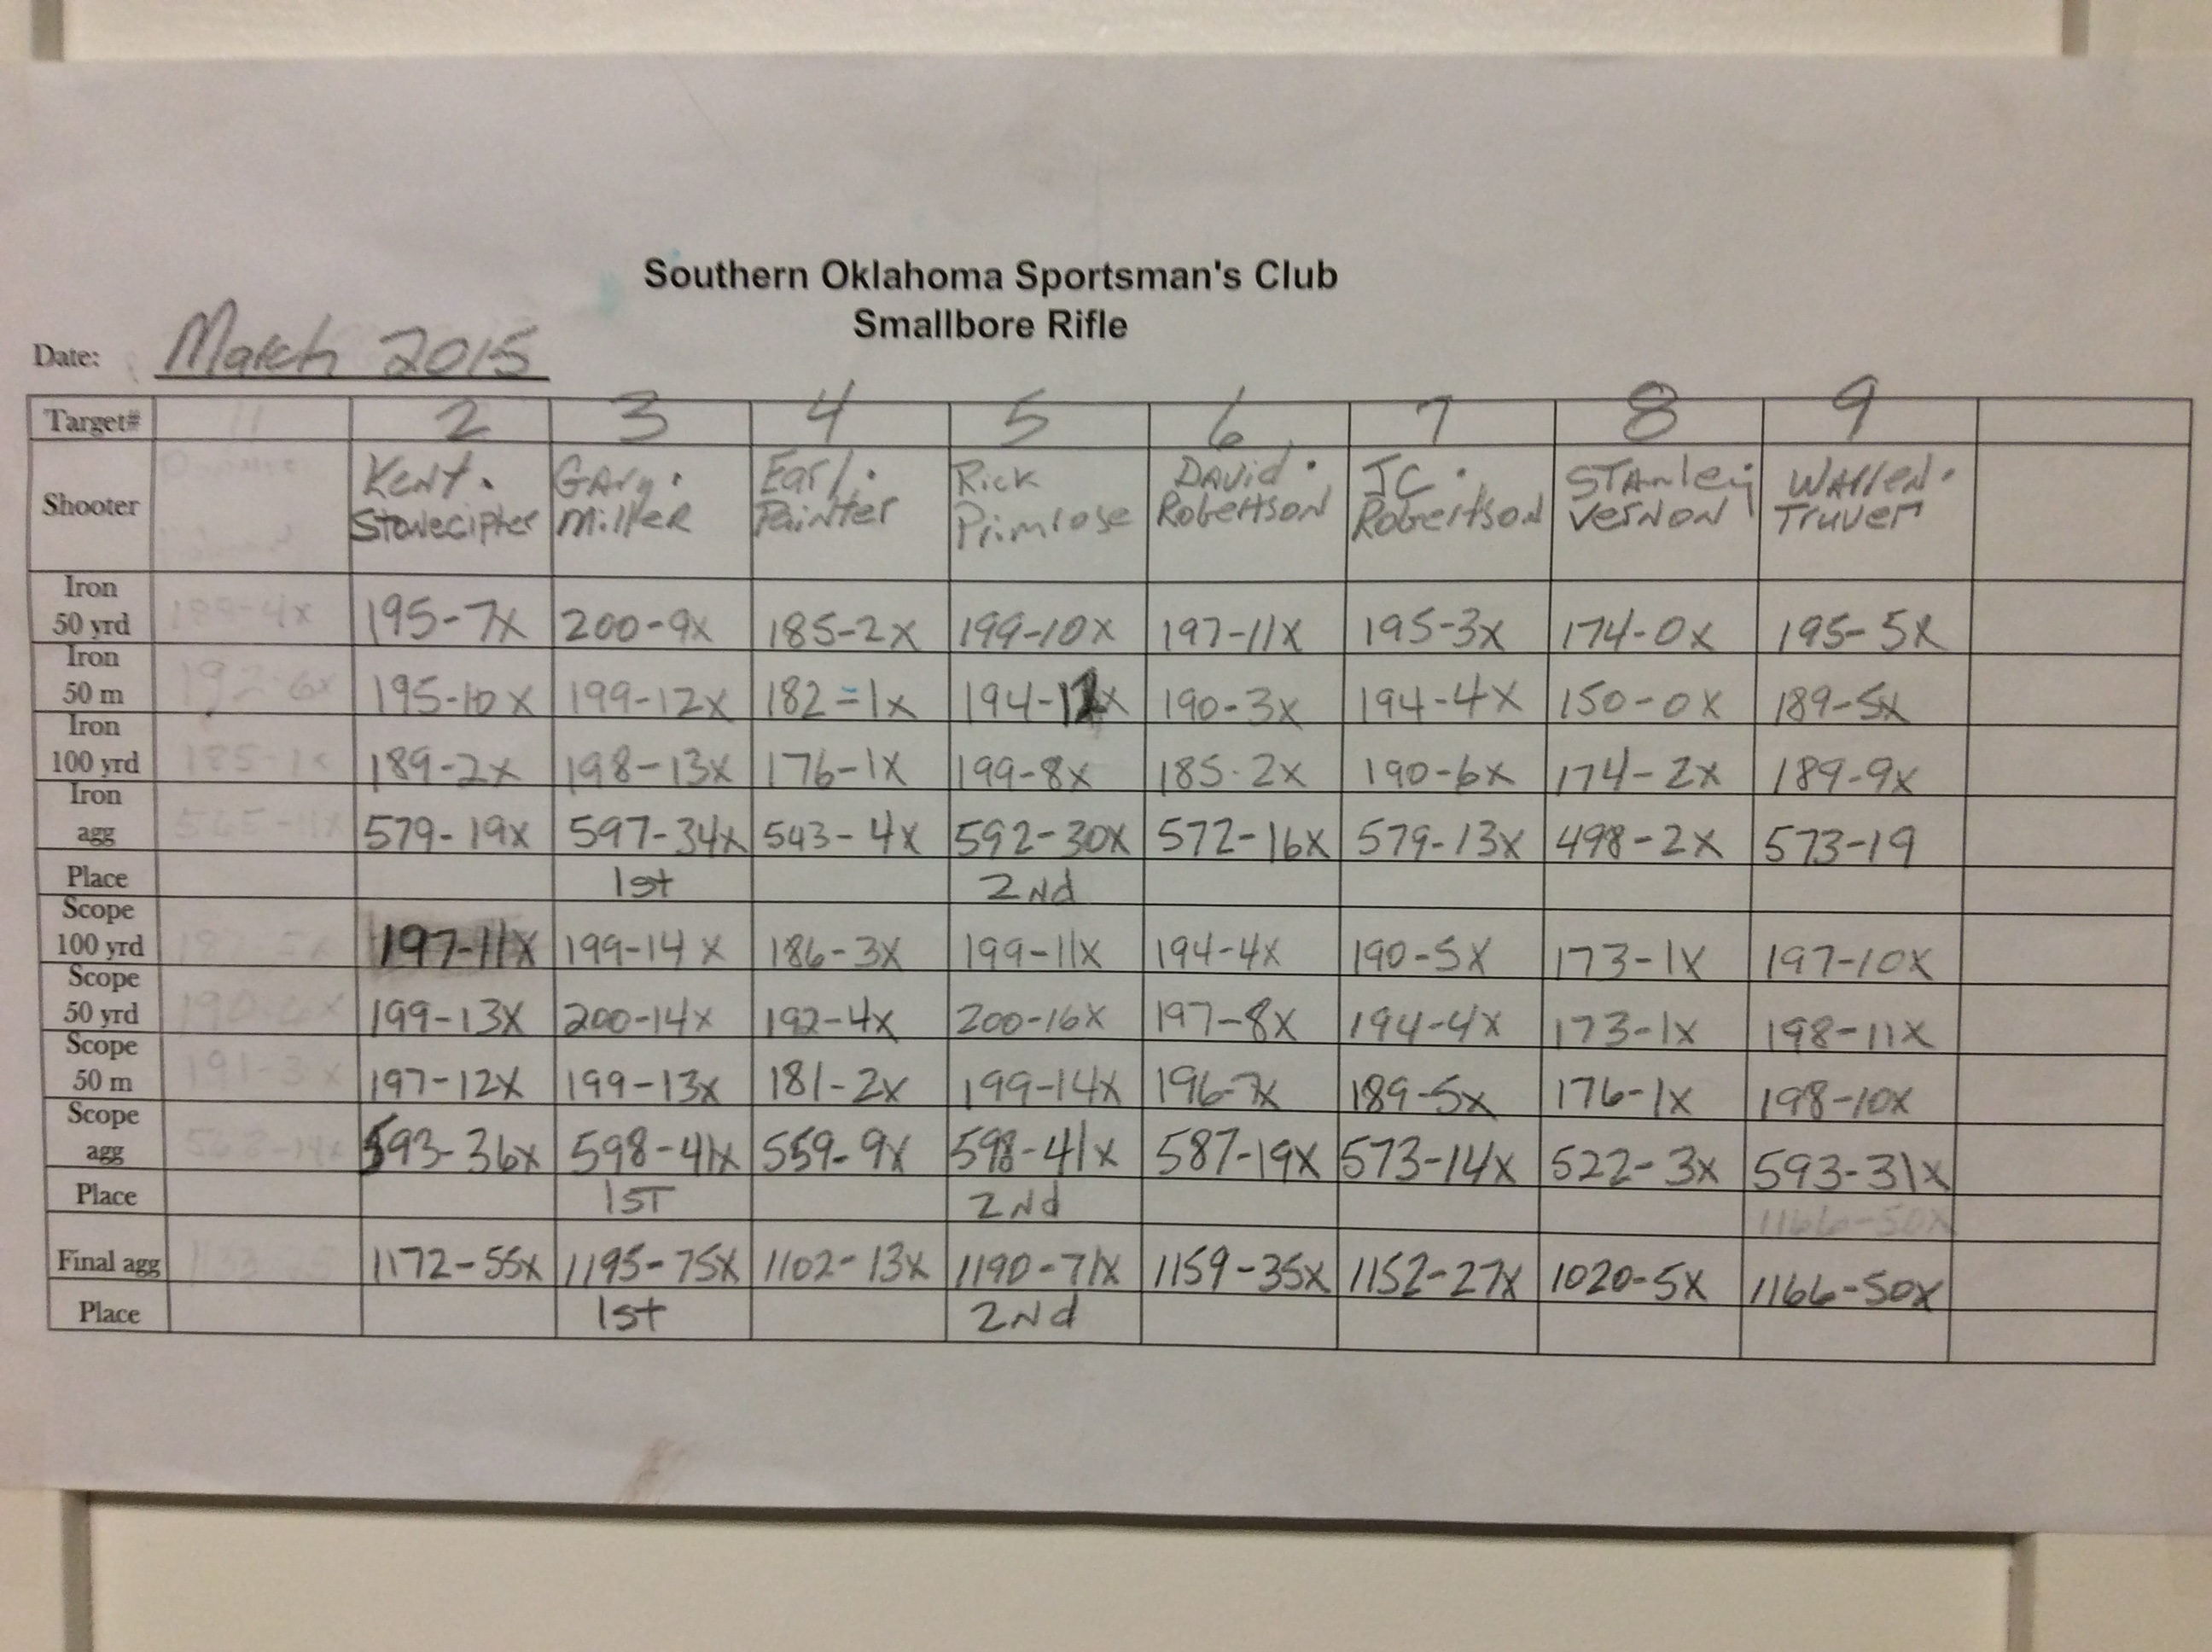 Southern Oklahoma Sportsman's Club
Smallbore Rifle
Date: March 2015
Target# 2 3 4 5 6 7 8 9
Shooter Kent. Stonecipher GAry. Miller Earl. Painter Rick Primrose DAvid. Robertson JC. Robertson STAnley Vernon WArren. Truver
Iron 50 yrd 199-4x 195-7x 200-9x 185-2x 199-10x 197-11x 195-3x 174-0x 195-5x
Iron 50 m 192-6x 195-10x 199-12x 182=1x 194-12x 190-3x 194-4x 150-0x 189-5x
Iron 100 yrd 185-1x 189-2x 198-13x 176-1x 199-8x 185-2x 190-6x 174-2x 189-9x
Iron agg 579-19x 597-34x 543-4x 592-30x 572-16x 579-13x 498-2x 573-19
Place 1st 2Nd
Scope 100 yrd 197-11x 199-14x 186-3x 199-11x 194-4x 190-5x 173-1x 197-10x
Scope 50 yrd 190-6x 199-13x 200-14x 192-4x 200-16x 197-8x 194-4x 173-1x 198-11x
Scope 50 m 191-3x 197-12x 199-13x 181-2x 199-14x 196-7x 189-5x 176-1x 198-10x
Scope agg 568-14x 593-36x 598-41x 559-9x 598-41x 587-19x 573-14x 522-3x 593-31x
Place 1ST 2Nd 1166-50x
Final agg 1172-55x 1195-75x 1102-13x 1190-71x 1159-35x 1152-27x 1020-5x 1166-50x
Place 1st 2Nd